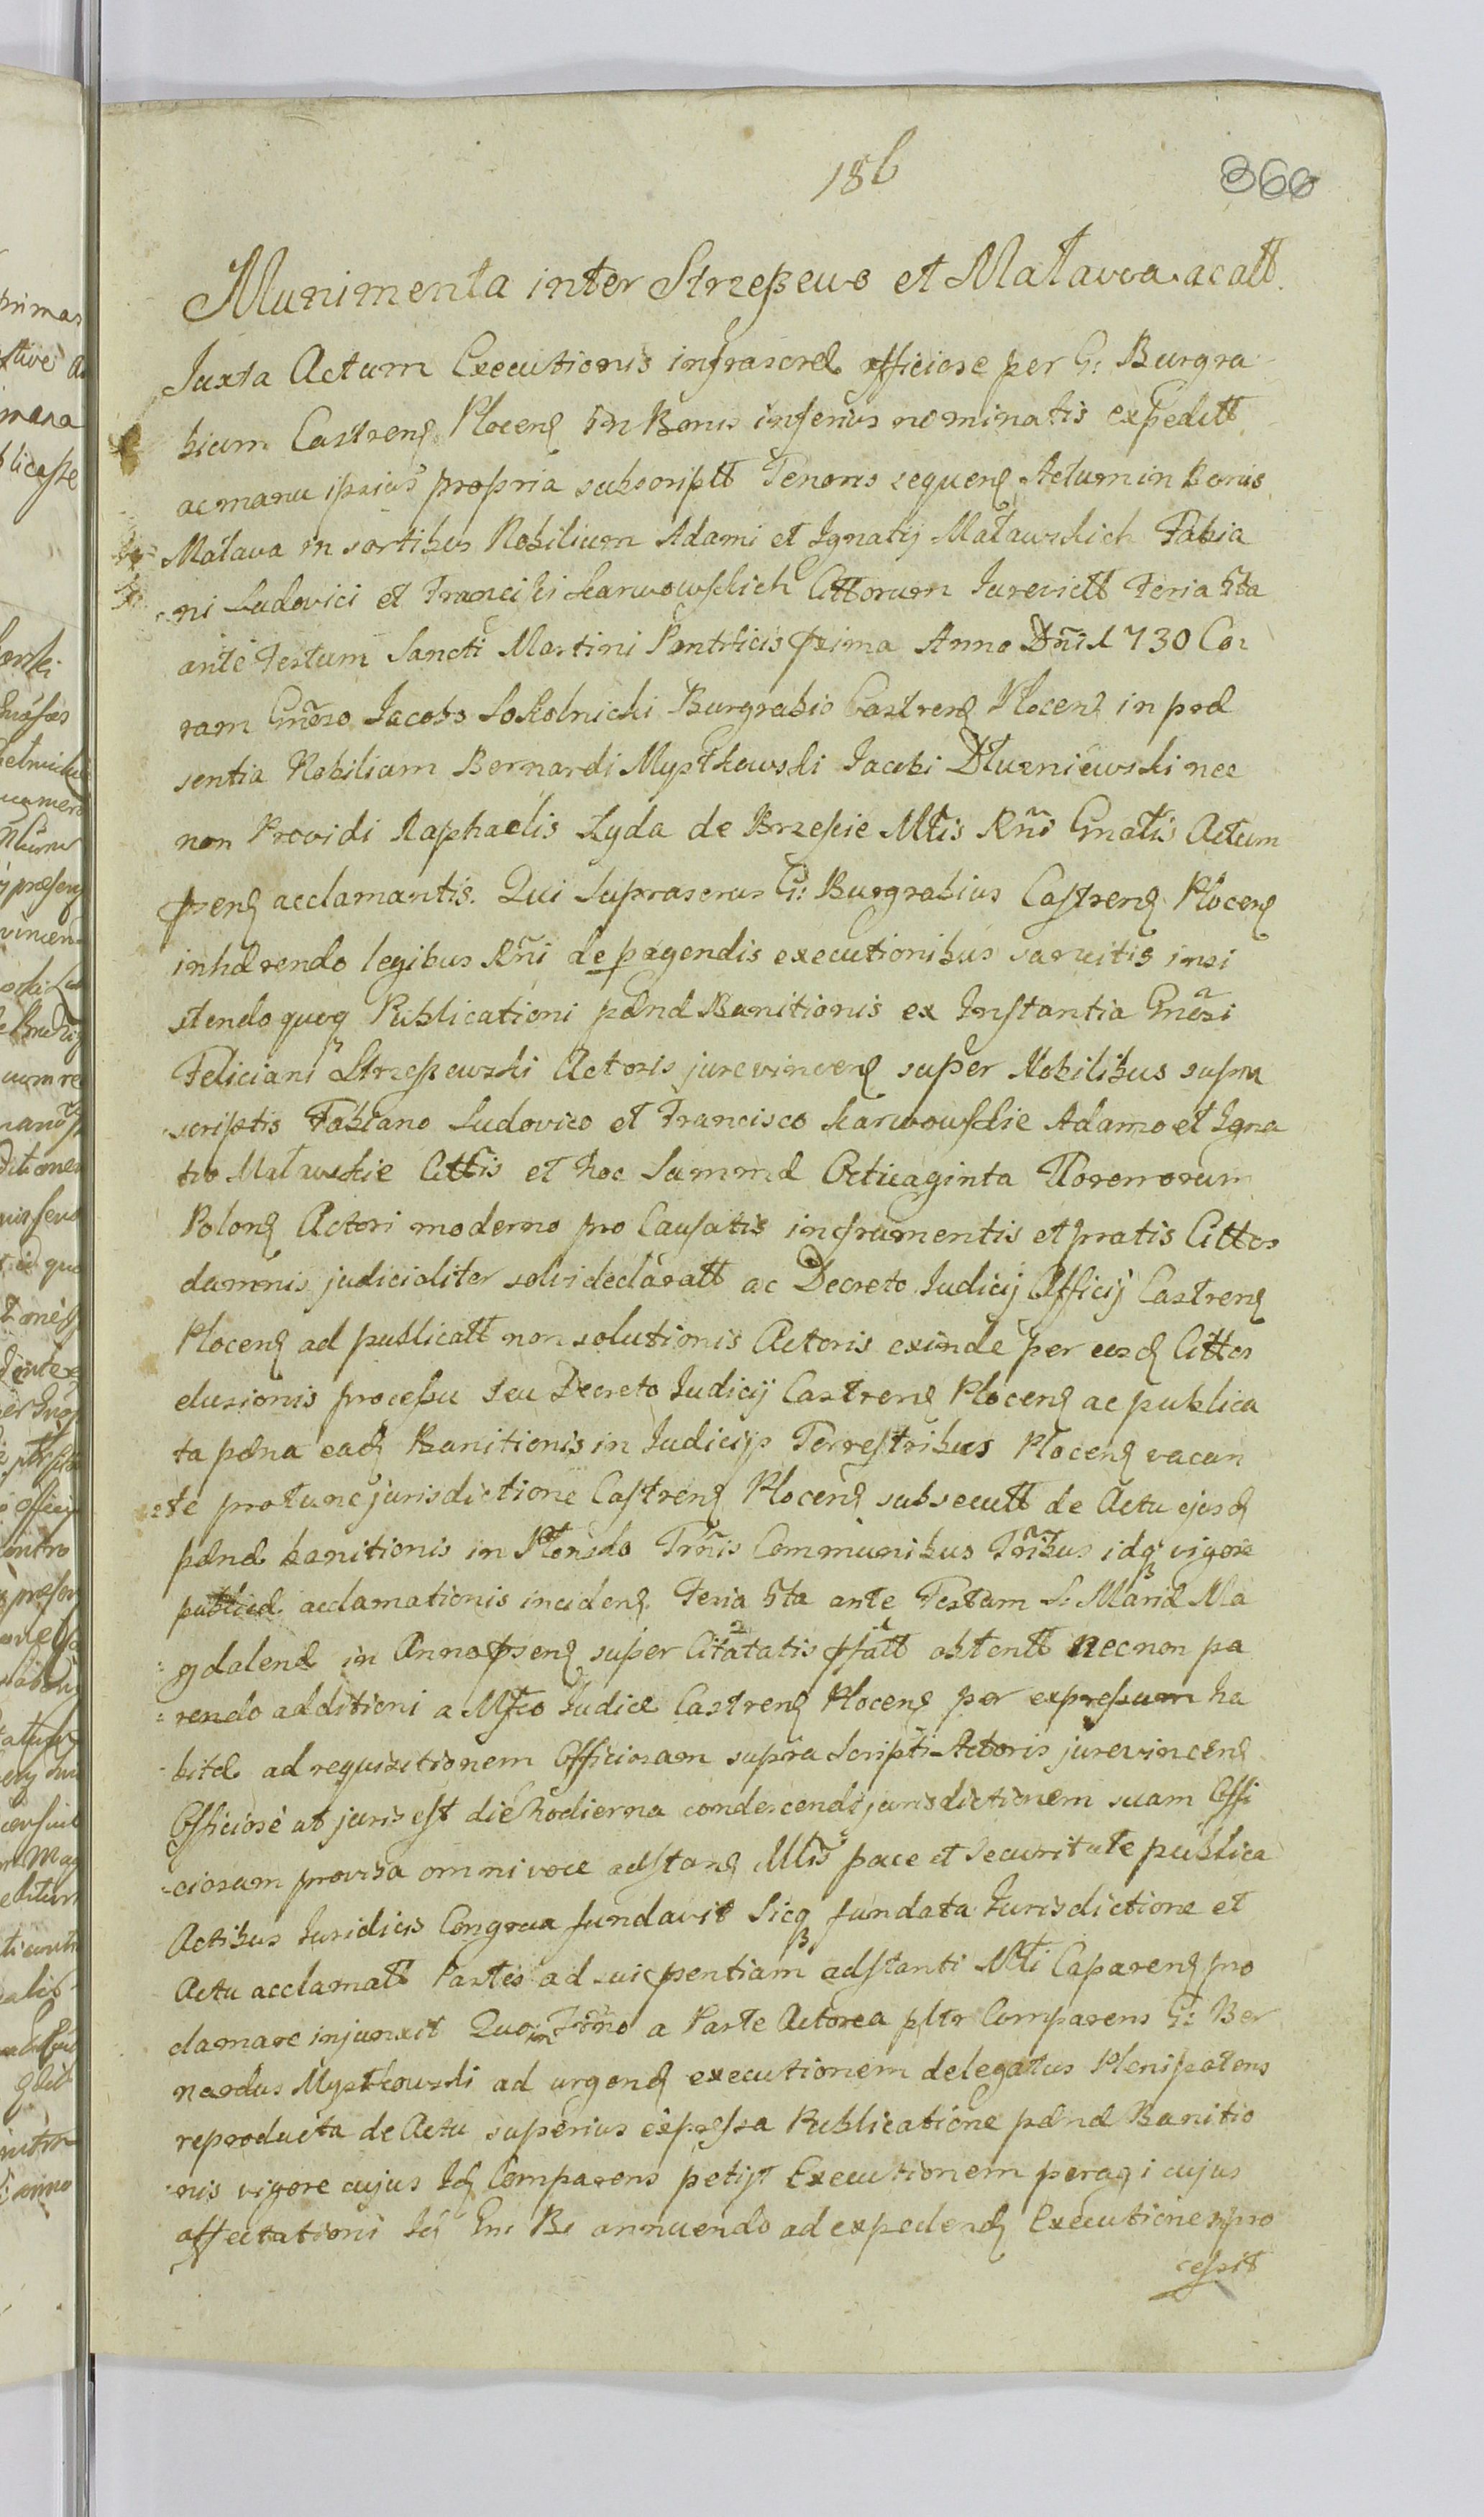 186
366
Munimenta inter Strzeszewo et Maława ac alt.
Juxta Actum Executionis infrascrae officiose per G: Burgra
bium Castrenȩ Plocenȩ in Bonis inferius nominatis expeditt
ac manu ipsius propria subscriptt Tenoris sequenȩ Actum in Bonis
Maława in sortibus Nobilium Adami et Ignatij Maławskich Fabia
ni Ludovici et Francisci Karwowskich Cittorum Jurevictt Feria 5ta
ante Festum Sancti Martini Pontificis pxima Anno Dñi 1730 Co
ram Gnõso Jacobo Sokolnicki Burgrabio Castrenȩ Plocenȩ in præ
sentia Nobilium Bernardi Mystkowski Jacobi Dłużniewski nec
non Providi Raphaelis Zyda de Brzesie Mtis Rñi Gnalis Actum
psenȩ acclamantis. Qui suprascrus G: Burgrabius Castrenȩ Plocenȩ
inhærendo legibus Rñi de pagendis executionibus sancitis insi
stendo quoqȝ Publicationi pænæ Banitionis ex Instantia Gnõsi
Feliciani Strzeszewski Actoris jurevincenȩ super Nobilibus supra
scriptis Fabiano Ludovico et Francisco Karwowskie Adamo et Igna
tio Maławskie Cittis et hoc Summæ Octuaginta Florenorum
Polonȩ Actori moderno pro Causatis in frumentis et pratis Cittos
damnis judicialiter solvi declaratt ac Decreto Judicij Officij Castrenȩ
Plocenȩ ad publicatt non solutionis Actoris exinde per eosȩ Cittos
elusionis processu seu Decreto Judicij Castrenȩ Plocenȩ ac publica
ta pæna eadȩ Banitionis in Judicijs Terrestribus Plocenȩ vacan
te protunc jurisdictione Castrenȩ Plocenȩ subsecutt de Actu ejusȩ
pænæ banitionis in Płonsko Trñis Communibus Trñibus idqȝ vigore
publicæ acclamationis incidenȩ Feria 5ta ante Festum S. Mariæ Ma
gdalenæ in Anno psenȩ super Citatis pfatt obtentt necnon pa
rendo additioni a Mfco Judice Castrenȩ Plocenȩ per expressum ha
bitæ ad requisitionem Officiosam supra Scripti Actoris jurevincenȩ
Officiose ut juris est die hodierna condescendi jurisdictionem suam Offi
ciosam provisa omni voce adstanȩ Mtis pace et securitate publica
Actibus Juridicis Congrua fundavit Sicqȝ fundata Jurisdictione et
Actu acclamatt Partes ad sui psentiam adstanti Mti Caparenȩ pro
clamare injunxit Quo in Trño a Parte Actorea pltr Comparens G: Ber
nardus Mystkowski ad urgenȩ executionem delegatus Plenipotens
reproducta de Actu superius expressa Publicatione pænæ Banitio
nis vigore cujus Idȩ Comparens petijt Executionem peragi cujus
affectationi Idȩ Gn: B: annuendo ad expedienȩ Executionem pro
cessit